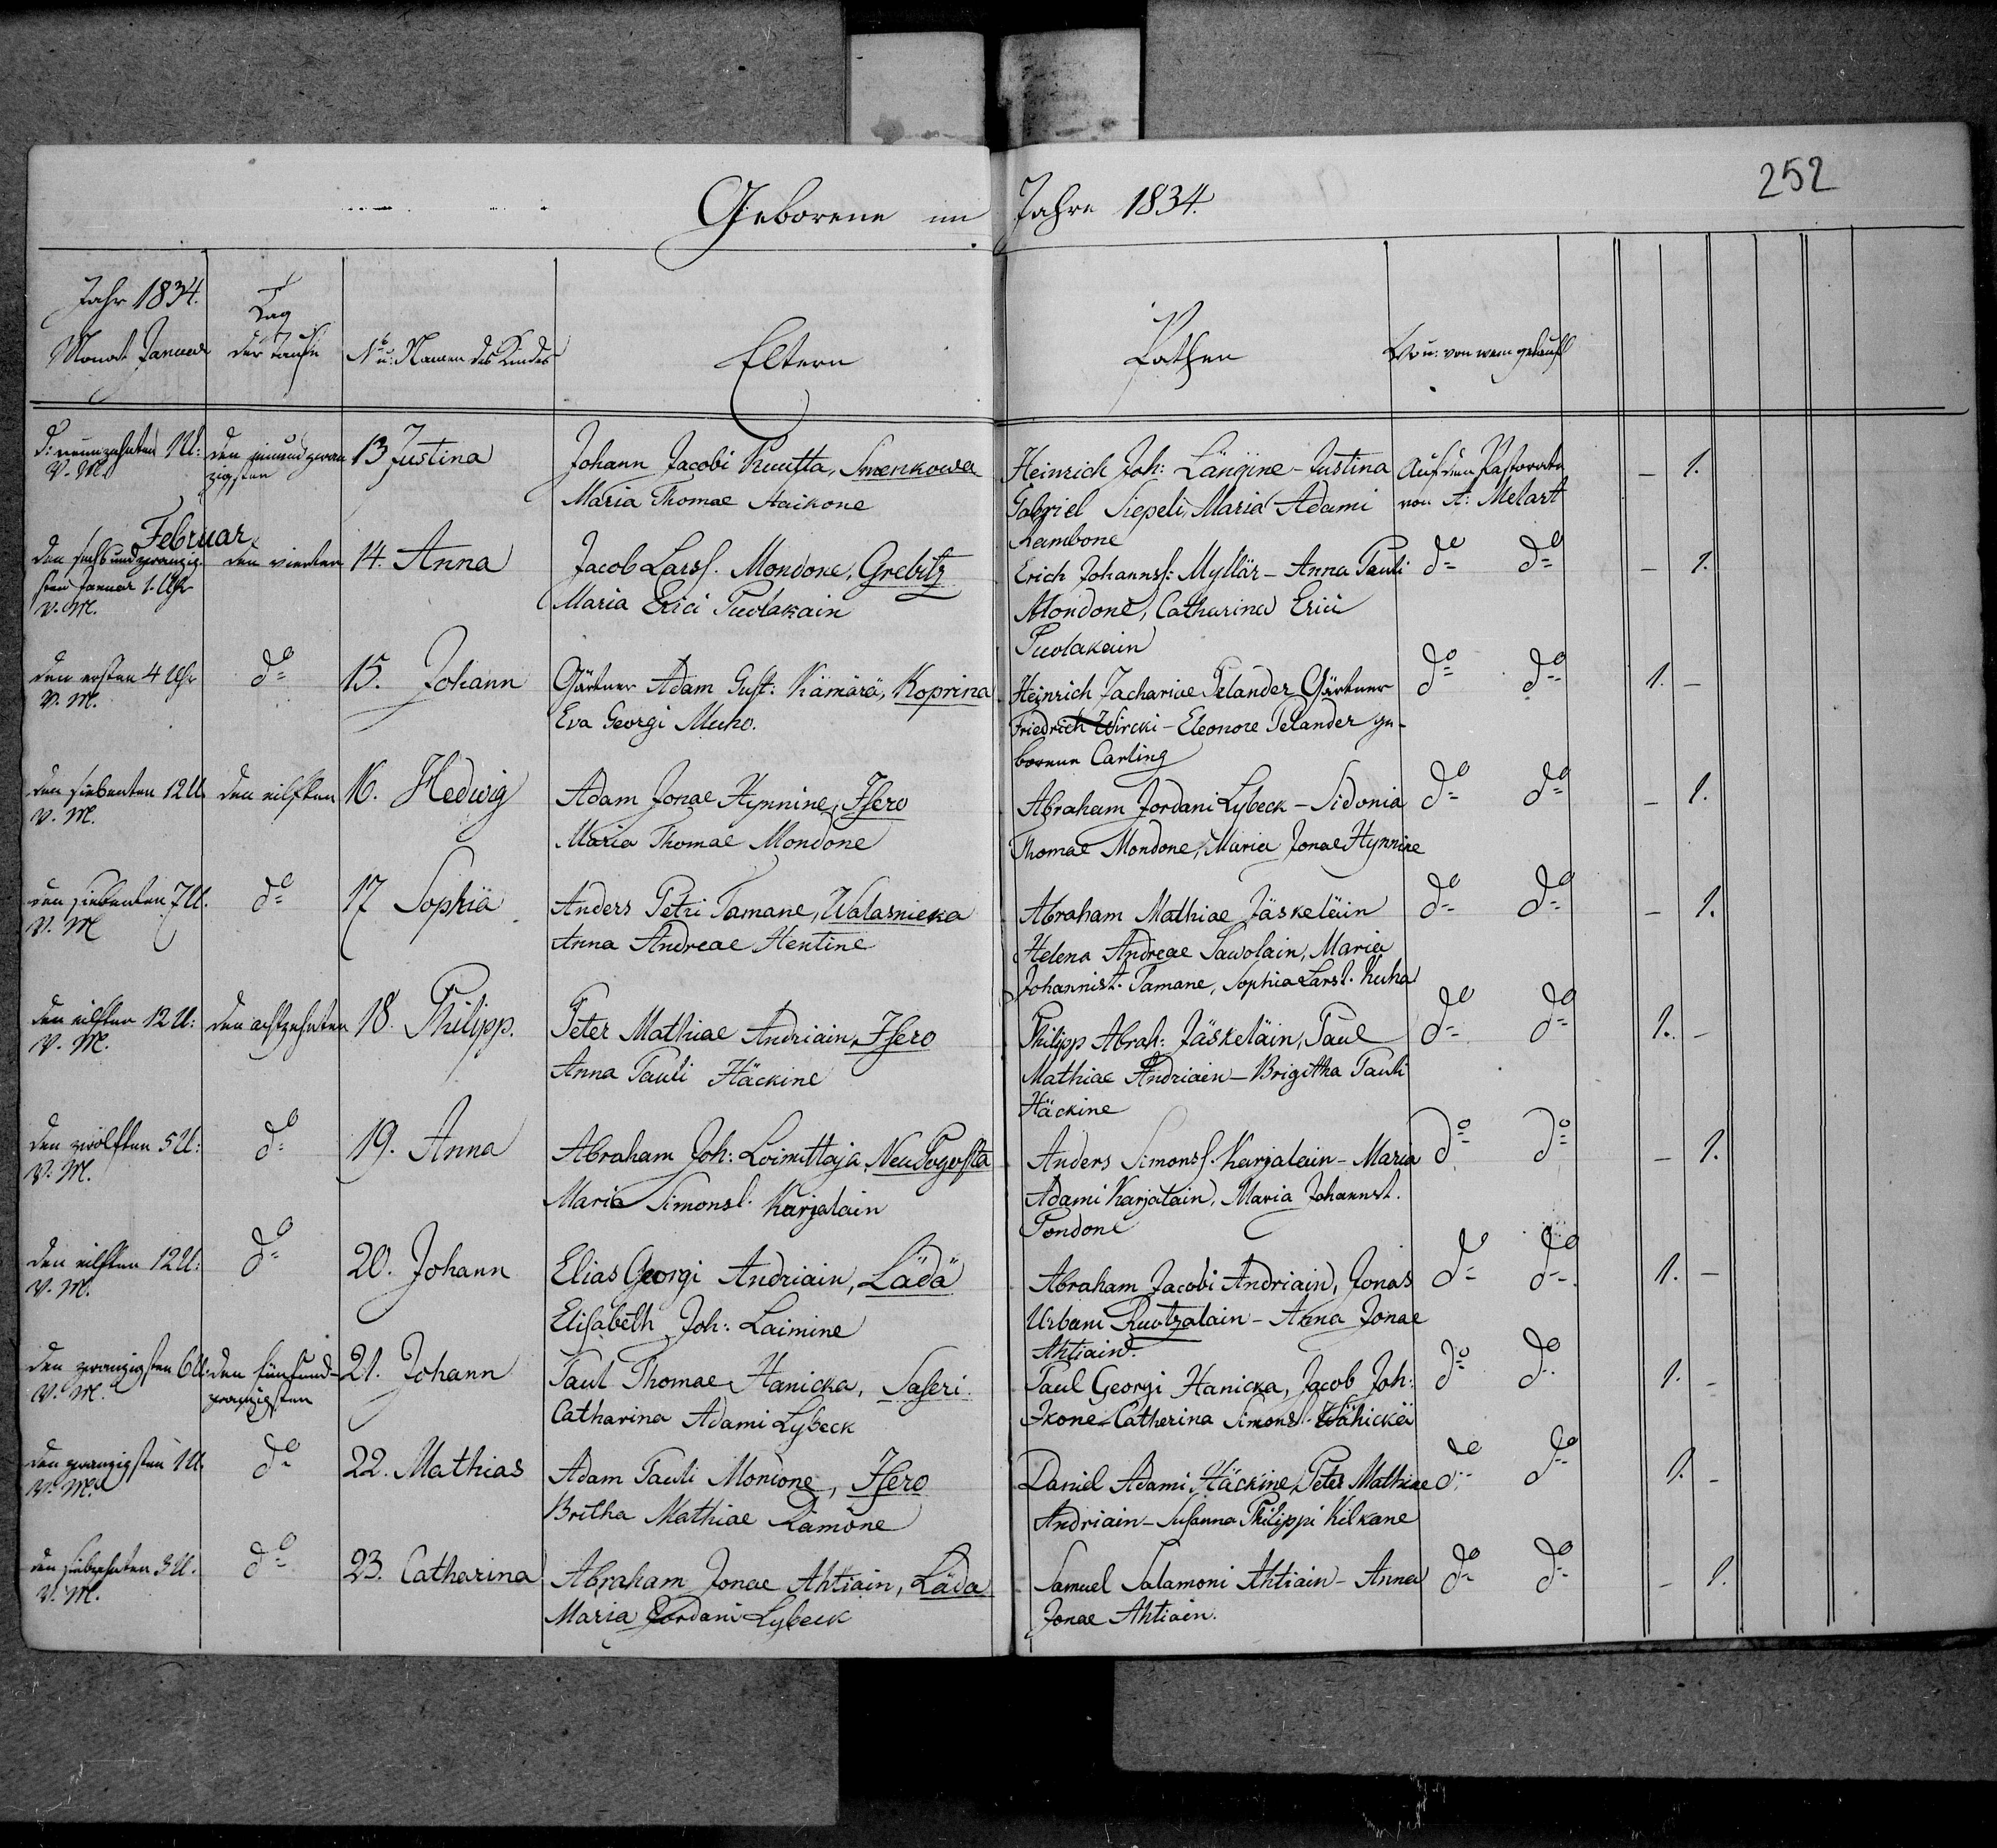 252
Geborene im Jahre 1834.
Jahr 1834.
Monat Januar
Tag
der Taufe
No u: Namen des Kindes
Eltern
Pathen
Wo u: von wem getauft
d: neunzehnten 1 U:
V. M.
den einundzwan
zigsten
13 Justina
Johann Jacobi Ruutta, Smenkowa
Maria Thomae Haikone
Heinrich Joh: Längine - Justina
Gabriel Siepeli, Maria Adami
Rambone
Auf dem Pastorate
von A: Melart
- 1.
Februar
den sechsundzwanzig-
sten Januar 1. Uhr
V. M.
den vierten
14. Anna
Jacob Larss. Mondone, Grebitz
Maria Erici Puolakain
Erich Johannss: Myllär - Anna Pauli
Mondone, Catharina Erici
Puolakain
do do
- 1.
den ersten 4 Uhr
V. M.
do
15. Johann
Gärtner Adam Gust: Kämärä, Koprina
Eva Georgi Muho.
Heinrich Zachariae Pelander Gärtner
Friedrich Wircki - Eleonore Pelander ge-
borene Carling
do do
1. -
den siebenten 12 U
V. M.
den eilften
16. Hedwig
Adam Jonae Hynnine, Issero
Maria Thomae Mondone
Abraham Jordani Lybeck - Sidonia
Thomae Mondone, Maria Jonae Hynnine
do do
- 1.
den siebenten 7 U.
V. M
do
17 Sophia
Anders Petri Tamane, Walasnicka
Anna Andreae Hentine
Abraham Mathiae Jäskeläin
Helena Andreae Sawolain, Maria
Johannist. Tamane, Sophia Larst. Kuha
do do
- 1.
den eilften 12 U:
V. M.
den achtzehnten
18. Philipp.
Peter Mathiae Andriain, Issero
Anna Pauli Häckine
Philipp Abrah: Jäskeläin, Paul
Mathiae Andriain - Brigitha Pauli
Häckine
do do
1. -
den zwölften 5 U:
V. M.
do
19. Anna
Abraham Joh: Loimittaja, Neu Pogosta
Maria Simonsl. Karjalain
Anders Simonss. Karjalain - Maria
Adami Karjalain, Maria Johannst.
Pondone
do do
- 1.
den eilften 12 U:
V. M.
do
20. Johann
Elias Georgi Andriain, Lädä
Elisabeth Joh: Laimine
Abraham Jacobi Andriain, Jonas
Urbani Ruotzalain - Anna Jonae
Ahtiain.
do do
1. -
den zwanzigsten 6 U.
V. M.
den fünfund-
zwanzigsten
21. Johann
Paul Thomae Hanicka, Saseri
Catharina Adami Lybeck
Paul Georgi Hanicka, Jacob Joh:
Ikone - Catherina Simonsl. Wähickä
do do
1. -
den zwanzigsten 1 U.
V. M.
do
22. Mathias
Adam Pauli Monone, Issero
Britha Mathiae Rämöne
Daniel Adami Häckine, Peter Mathiae
Andriain - Susanna Philippi Kilkane
do do
1. -
den siebzehnten 3 U.
V. M.
do
23. Catharina
Abraham Jonae Ahtiain, Läda
Maria Jordani Lybeck
Samuel Salamoni Ahtiain - Anna
Jonae Ahtiain.
do do
- 1.